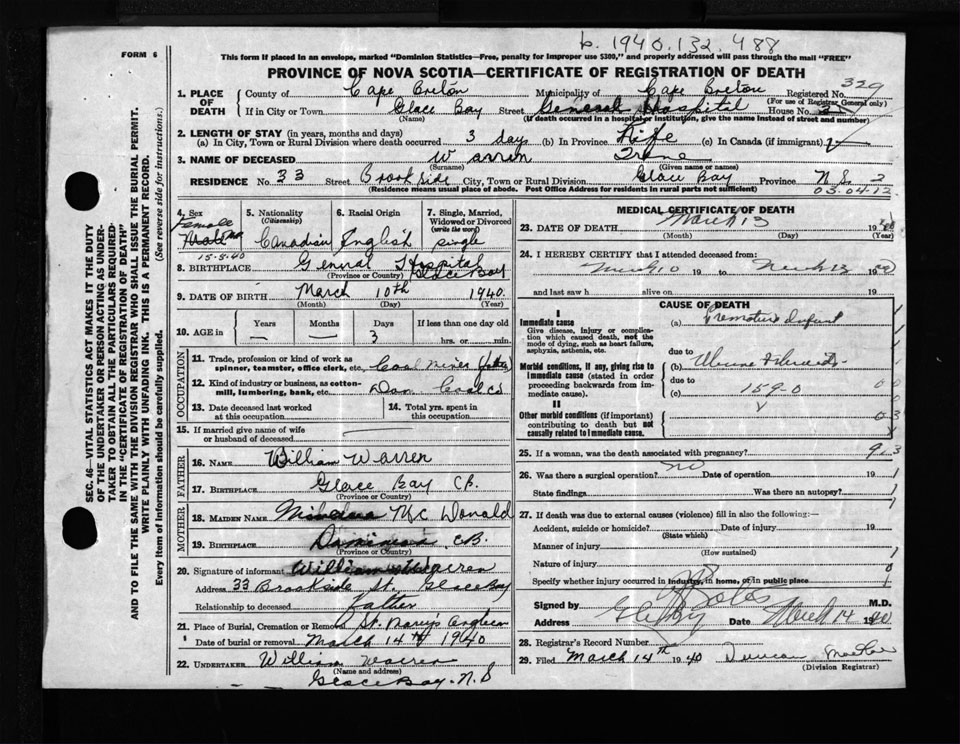 b. 1940.132.488
FORM 6
This form if placed in an envelope, marked "Dominion Statistics—Free, penalty for improper use $300," and properly addressed will pass through the mail "FREE"
PROVINCE OF NOVA SCOTIA—CERTIFICATE OF REGISTRATION OF DEATH
329
1. PLACE OF DEATH
County of Cape Breton Municipality of Cape Breton Registered No.
(For use of Registrar General only)
If in City or Town Glace Bay Street General Hospital House No.
(Name) (If death occurred in a hospital or institution, give the name instead of street and number)
2. LENGTH OF STAY (in years, months and days)
(a) In City, Town or Rural Division where death occurred 3 day (b) In Province Life (c) In Canada (if immigrant)
3. NAME OF DECEASED Warren Irene
(Surname) (Given name or names)
RESIDENCE No. 33 Street Brookside City, Town or Rural Division Glace Bay Province N.S. 2
(Residence means usual place of abode. Post Office Address for residents in rural parts not sufficient) 03.04.12
4. Sex Female
5. Nationality (Citizenship) Canadian
6. Racial Origin English
7. Single, Married, Widowed or Divorced (write the word) single
15-5-40
8. BIRTHPLACE General Hospital Glace Bay
(Province or Country)
9. DATE OF BIRTH March 10th 1940
(Month) (Day) (Year)
10. AGE in Years Months Days If less than one day old
3 hrs. or min.
OCCUPATION
11. Trade, profession or kind of work as spinner, teamster, office clerk, etc. Coal Miner (father)
12. Kind of industry or business, as cotton-mill, lumbering, bank, etc. Dom Coal Co
13. Date deceased last worked at this occupation
14. Total yrs. spent in this occupation
15. If married give name of wife or husband of deceased
FATHER
16. NAME William Warren
17. BIRTHPLACE Glace Bay CB.
(Province or Country)
MOTHER
18. MAIDEN NAME McDonald
19. BIRTHPLACE Dominion CB.
(Province or Country)
20. Signature of informant William Warren
Address 33 Brookside St. Glace Bay
Relationship to deceased father
21. Place of Burial, Cremation or Removal St. Mary's
Date of burial or removal March 14th 1940
22. UNDERTAKER William Warren
(Name and address)
Glace Bay. N.S
MEDICAL CERTIFICATE OF DEATH
23. DATE OF DEATH March 13 1940
(Month) (Day) (Year)
24. I HEREBY CERTIFY that I attended deceased from:
March 10 19 to March 13 1940
and last saw h alive on 19
CAUSE OF DEATH
I
Immediate cause
Give disease, injury or complication which caused death, not the mode of dying, such as heart failure, asphyxia, asthenia, etc.
(a) Premature Infant
due to
Morbid conditions, if any, giving rise to immediate cause (stated in order proceeding backwards from immediate cause).
(b)
due to
(c) 159-0
II
Other morbid conditions (if important) contributing to death but not causally related to immediate cause.
25. If a woman, was the death associated with pregnancy?
26. Was there a surgical operation? no Date of operation 19
State findings Was there an autopsy?
27. If death was due to external causes (violence) fill in also the following:—
Accident, suicide or homicide? Date of injury 19
(State which)
Manner of injury
(How sustained)
Nature of injury
Specify whether injury occurred in industry, in home, or in public place
Signed by M.D.
Address Date March 14 1940
28. Registrar's Record Number
29. Filed March 14th 1940 Duncan
(Division Registrar)
SEC. 46—VITAL STATISTICS ACT MAKES IT THE DUTY
OF THE UNDERTAKER OR PERSON ACTING AS UNDERTAKER
TO OBTAIN ALL THE PARTICULARS REQUIRED
IN THE "CERTIFICATE OF REGISTRATION OF DEATH"
AND TO FILE THE SAME WITH THE DIVISION REGISTRAR WHO SHALL ISSUE THE BURIAL PERMIT.
WRITE PLAINLY WITH UNFADING INK. THIS IS A PERMANENT RECORD.
Every item of information should be carefully supplied. (See reverse side for instructions.)